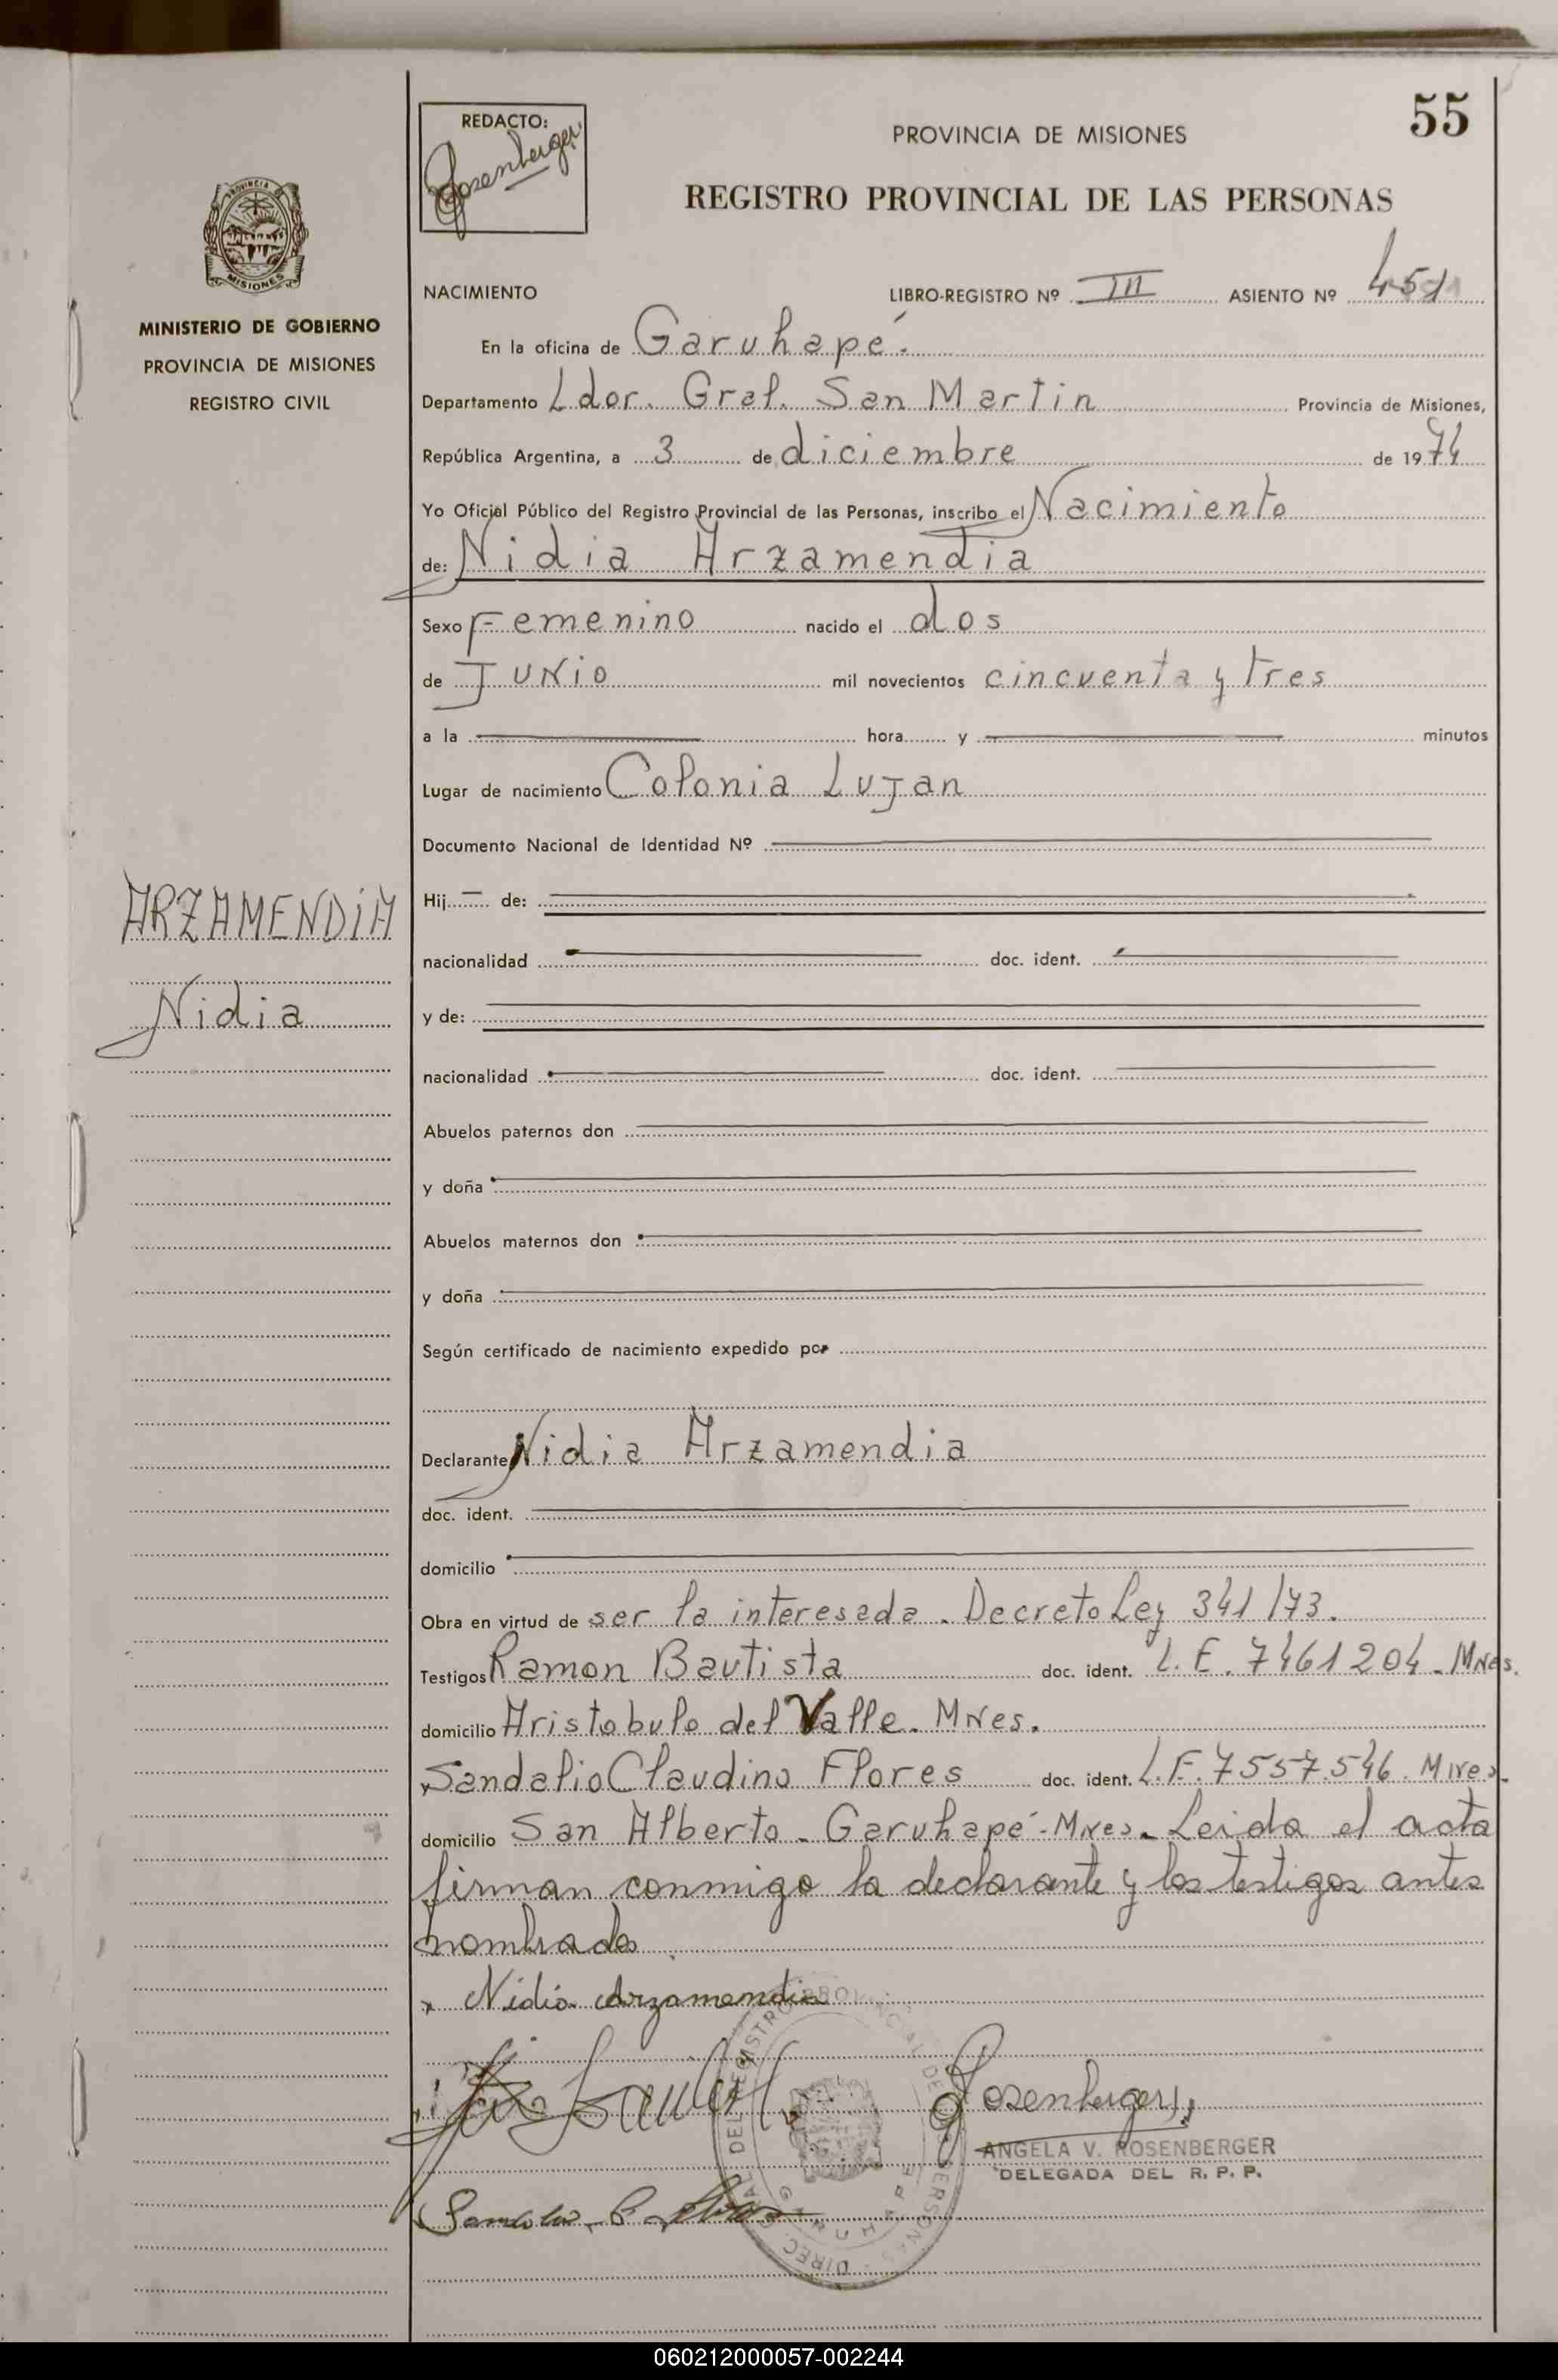 55
REDACTO:
Rosenberger
PROVINCIA DE MISIONES
REGISTRO PROVINCIAL DE LAS PERSONAS
PROVINCIA DE
MISIONES
MINISTERIO DE GOBIERNO
PROVINCIA DE MISIONES
REGISTRO CIVIL
NACIMIENTO LIBRO-REGISTRO Nº III ASIENTO Nº 451
En la oficina de Garuhapé.
Departamento Ldor. Gral. San Martin Provincia de Misiones,
República Argentina, a 3 de diciembre de 1974
Yo Oficial Público del Registro Provincial de las Personas, inscribo el Nacimiento
de: Nidia Arzamendia
Sexo Femenino nacido el dos
de Junio mil novecientos cincuenta y tres
a la hora y minutos
Lugar de nacimiento Colonia Lujan
Documento Nacional de Identidad Nº
ARZAMENDIA
Nidia
Hij de:
nacionalidad doc. ident.
y de:
nacionalidad doc. ident.
Abuelos paternos don
y doña
Abuelos maternos don
y doña
Según certificado de nacimiento expedido por
Declarante Nidia Arzamendia
doc. ident.
domicilio
Obra en virtud de ser la interesada. Decreto Ley 341/73.
Testigos Ramon Bautista doc. ident. L.E. 7461204. Mnes.
domicilio Aristobulo del Valle. Mnes.
y Sandalio Claudino Flores doc. ident. L.E. 7557.546. Mnes.
domicilio San Alberto. Garuhapé-Mnes. Leida el acta
firman conmigo la declarante y los testigos antes
nombrados
x Nidia Arzamendia
Rosenberger
ANGELA V. ROSENBERGER
DELEGADA DEL R. P. P.
GARUHAPE
060212000057-002244